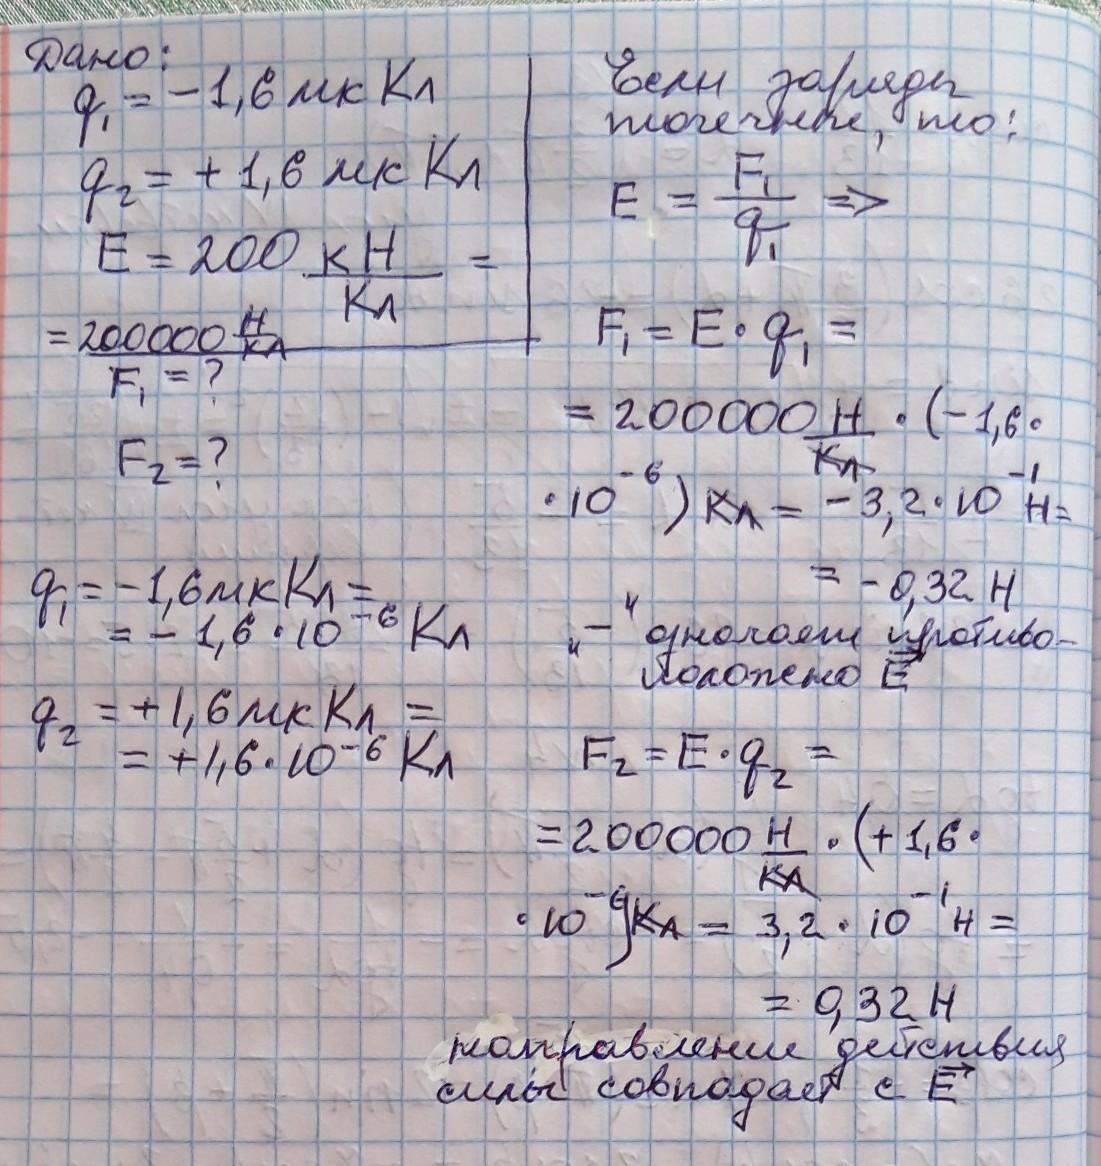 Дано:
q₁ = -1,6 мк Кл
q₂ = +1,6 мк Кл
E = 200 кН/Кл =
= 200000 Н/Кл
F₁ = ?
F₂ = ?
q₁ = -1,6 мк Кл =
= -1,6 · 10⁻⁶ Кл
q₂ = +1,6 мк Кл =
= +1,6 · 10⁻⁶ Кл
Если заряды
точечные, то:
E = F₁/q₁ =>
F₁ = E · q₁ =
= 200000 Н/Кл · (-1,6 ·
· 10⁻⁶) Кл = -3,2 · 10⁻¹ Н =
= -0,32 Н
„-" означает противо-
положено E⃗
F₂ = E · q₂ =
= 200000 Н/Кл · (+1,6 ·
· 10⁻⁶) Кл = 3,2 · 10⁻¹ Н =
= 0,32 Н
направление действия
силы совпадает с E⃗